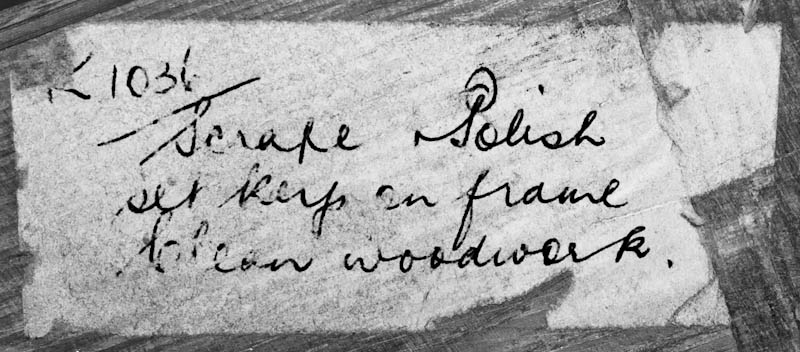 K 1036
Scrape & Polish
set keys in frame
Clean woodwork.